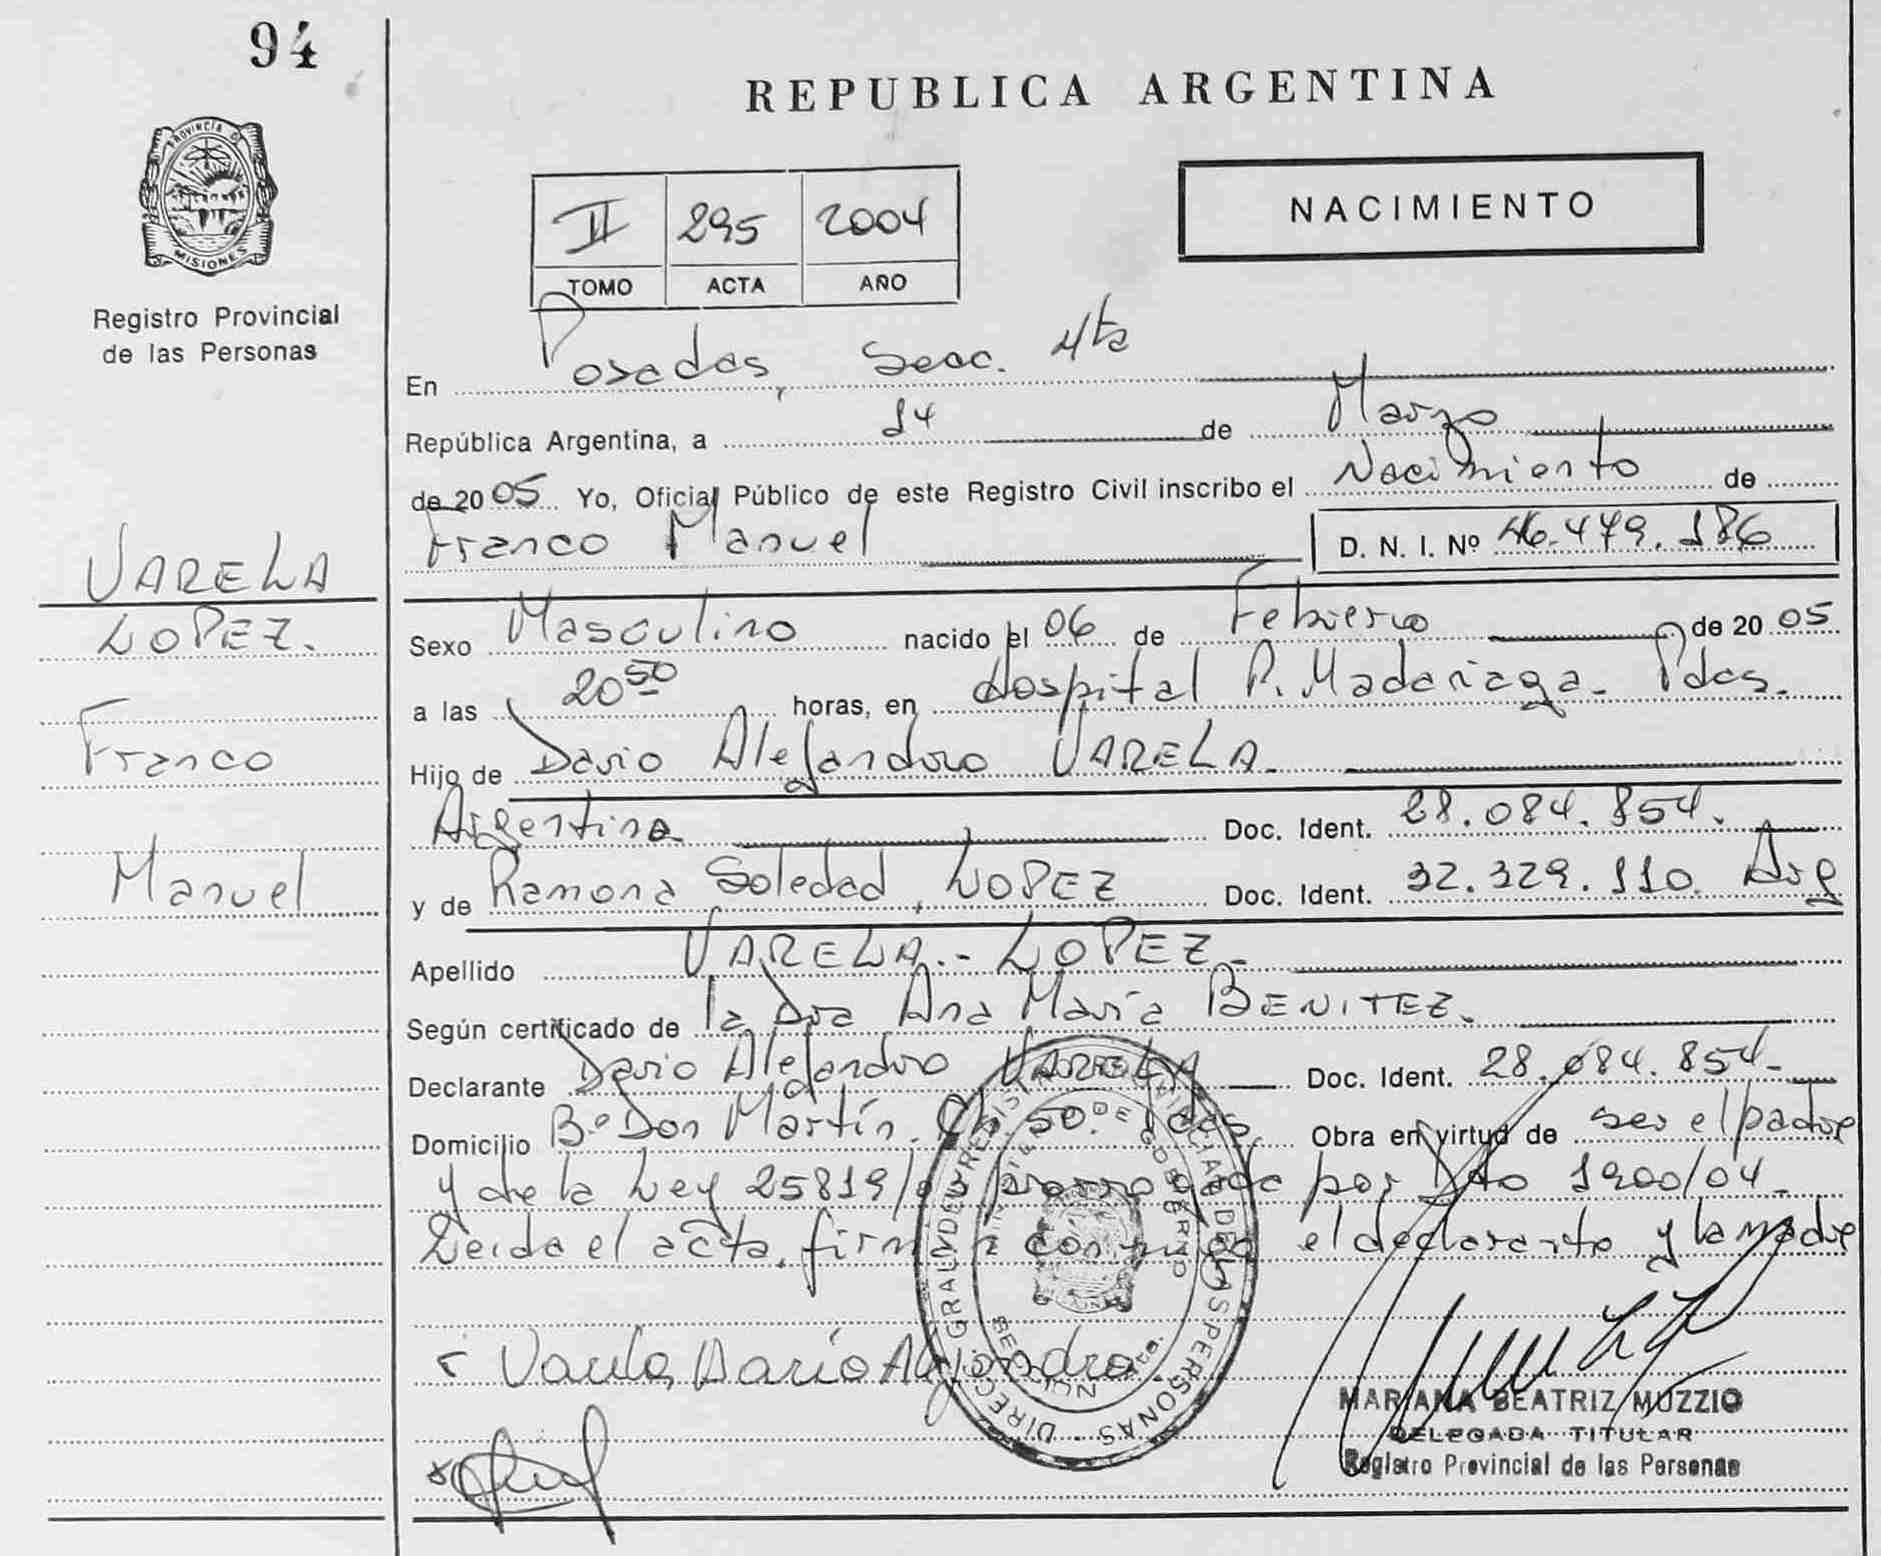 94
REPUBLICA ARGENTINA
PROVINCIA DE
MISIONES
Registro Provincial
de las Personas
NACIMIENTO
II 295 2004
TOMO ACTA AÑO
En Posadas, Secc. 4ta
República Argentina, a 14 de Marzo
de 2005 Yo, Oficial Público de este Registro Civil inscribo el Nacimiento de
Franco Manuel D. N. I. Nº 46.479.186
VARELA
LOPEZ.
Franco
Manuel
Sexo Masculino nacido el 06 de Febrero de 2005
a las 20 50 horas, en Hospital R. Madariaga. Pdas.
Hijo de Dario Alejandro VARELA
Argentina Doc. Ident. 28.084.854.
y de Ramona Soledad, LOPEZ Doc. Ident. 32.329.110. Arg
Apellido VARELA.- LOPEZ.-
Según certificado de la Dra Ana María BENITEZ.
Declarante Dario Alejandro VARELA Doc. Ident. 28.084.854.-
Domicilio Bº Don Martín. Ch. 50. Pdas. Obra en virtud de ser el padre
y de la Ley 25819/03 prorrogada por Dto 1900/04.
Leida el acta, firman conmigo el declarante y la madre
Varela Darío Alejandro
DIRECC. GRAL. DEL REGISTRO PROVINCIAL DE LAS PERSONAS
MINISTERIO DE GOBIERNO
SECCION 4ta.
MARIANA BEATRIZ MUZZIO
DELEGADA TITULAR
Registro Provincial de las Personas